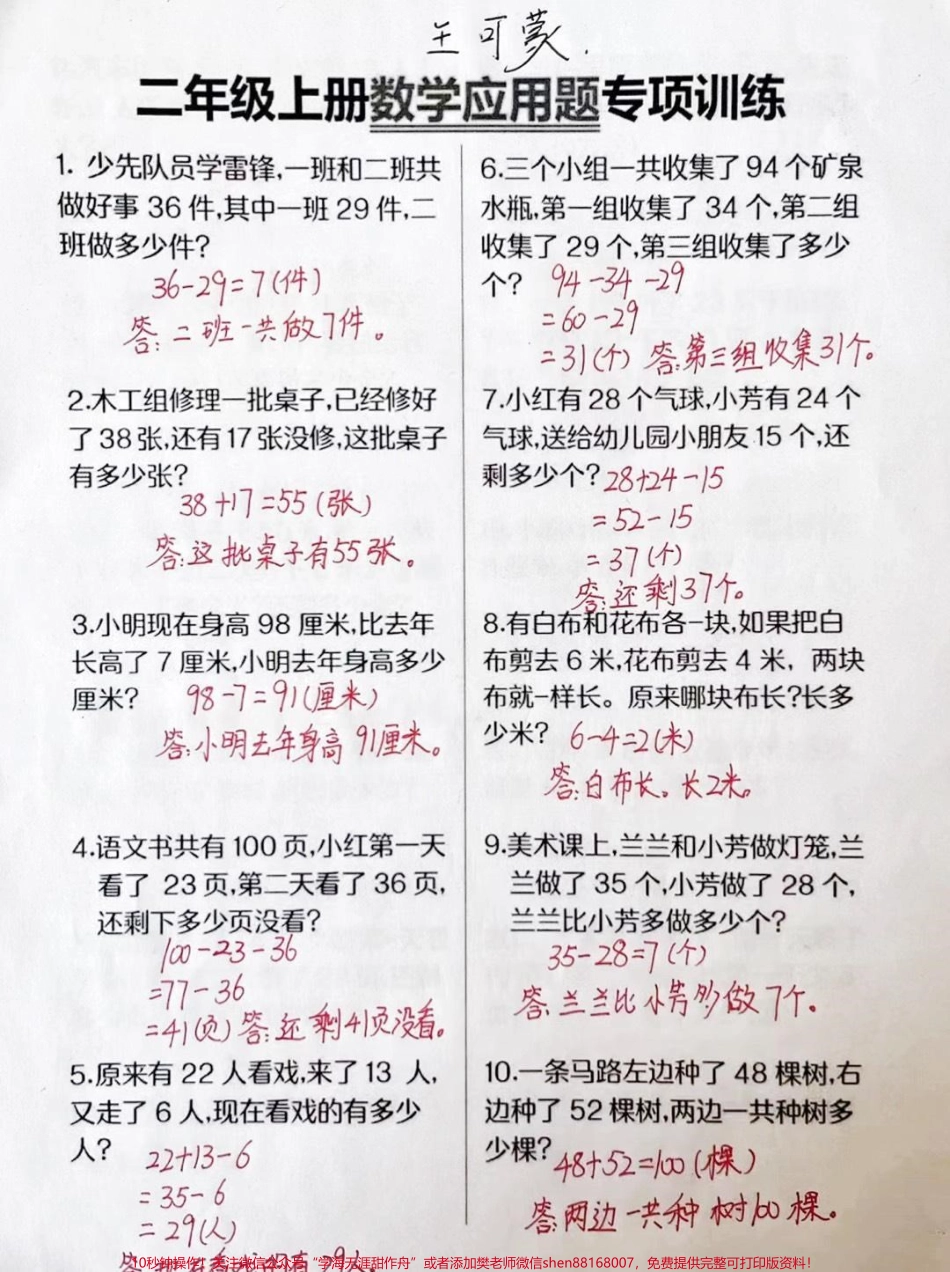 王可蒙.
二年级上册数学应用题专项训练
1. 少先队员学雷锋,一班和二班共
做好事 36 件,其中一班 29 件,二
班做多少件?
36-29=7(件)
答:二班一共做7件。
2.木工组修理一批桌子,已经修好
了38张,还有17张没修,这批桌子
有多少张?
38+17=55(张)
答:这批桌子有55张。
3.小明现在身高 98 厘米,比去年
长高了 7 厘米,小明去年身高多少
厘米?
98-7=91(厘米)
答:小明去年身高91厘米。
4.语文书共有100 页,小红第一天
看了 23 页,第二天看了 36 页,
还剩下多少页没看?
100-23-36
=77-36
=41(页) 答:还剩41页没看。
5.原来有 22 人看戏,来了 13 人,
又走了 6 人,现在看戏的有多少
人?
22+13-6
=35-6
=29(人)
6.三个小组一共收集了 94 个矿泉
水瓶,第一组收集了 34 个,第二组
收集了 29 个,第三组收集了多少
个?
94-34-29
=60-29
=31(个) 答:第三组收集31个。
7.小红有28 个气球,小芳有 24 个
气球,送给幼儿园小朋友15 个,还
剩多少个?
28+24-15
=52-15
=37(个)
答:还剩37个。
8.有白布和花布各-块,如果把白
布剪去 6 米,花布剪去 4 米，两块
布就-样长。原来哪块布长?长多
少米?
6-4=2(米)
答:白布长。长2米。
9.美术课上,兰兰和小芳做灯笼,兰
兰做了 35 个,小芳做了 28 个,
兰兰比小芳多做多少个?
35-28=7(个)
答:兰兰比小芳多做7个。
10.一条马路左边种了 48 棵树,右
边种了 52 棵树,两边一共种树多
少棵?
48+52=100(棵)
答:两边一共种树100棵。
10秒钟操作！关注微信公众号“学海天涯甜作舟”或者添加樊老师微信shen88168007，免费提供完整可打印版资料！